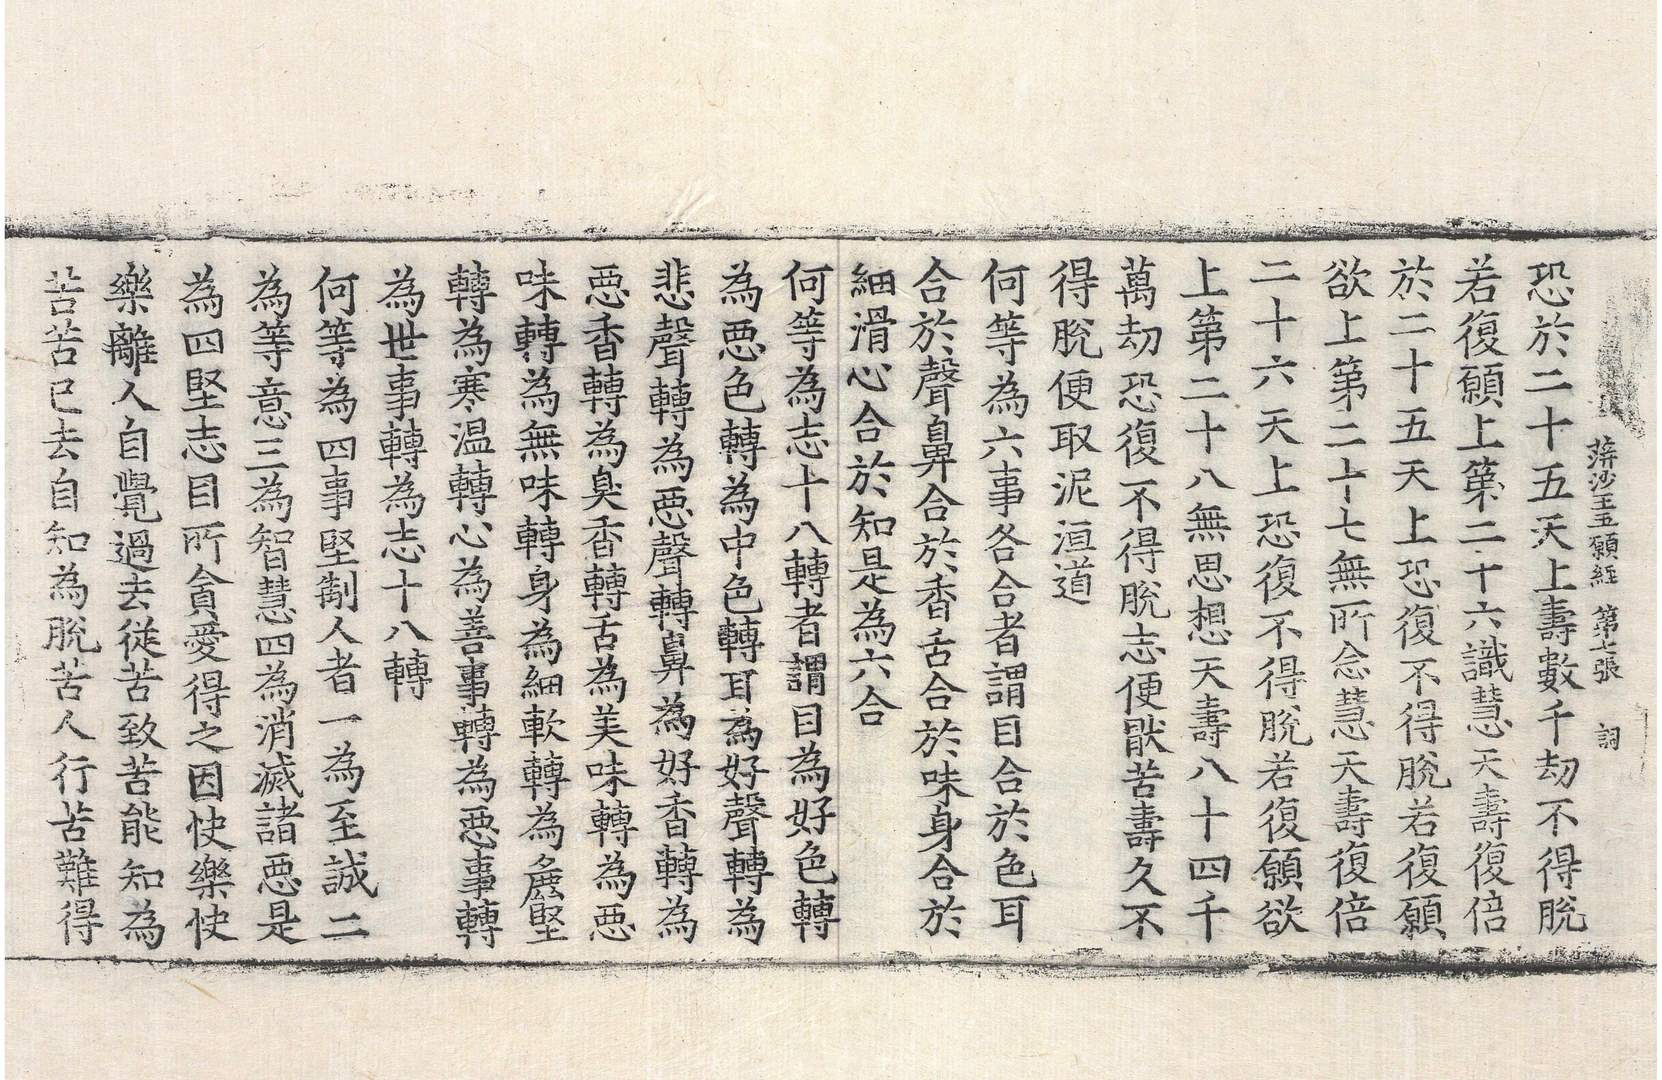 蓱沙王五願經 第七張 詞
恐於二十五天上壽數千劫不得脫
若復願上第二十六識慧天壽復倍
於二十五天上恐復不得脫若復願
欲上第二十七無所念慧天壽復倍
二十六天上恐復不得脫若復願欲
上第二十八無思想天壽八十四千
萬劫恐復不得脫志便猒苦壽久不
得脫便取泥洹道
何等為六事各合者謂目合於色耳
合於聲鼻合於香舌合於味身合於
細滑心合於知是為六合
何等為志十八轉者謂目為好色轉
為惡色轉為中色轉耳為好聲轉為
悲聲轉為惡聲轉鼻為好香轉為
惡香轉為臭香轉舌為美味轉為惡
味轉為無味轉身為細軟轉為麁堅
轉為寒溫轉心為善事轉為惡事轉
為世事轉為志十八轉
何等為四事堅制人者一為至誠二
為等意三為智慧四為消滅諸惡是
為四堅志目所貪愛得之因快樂快
樂離人自覺過去從苦致苦能知為
苦苦已去自知為脫苦人行苦難得